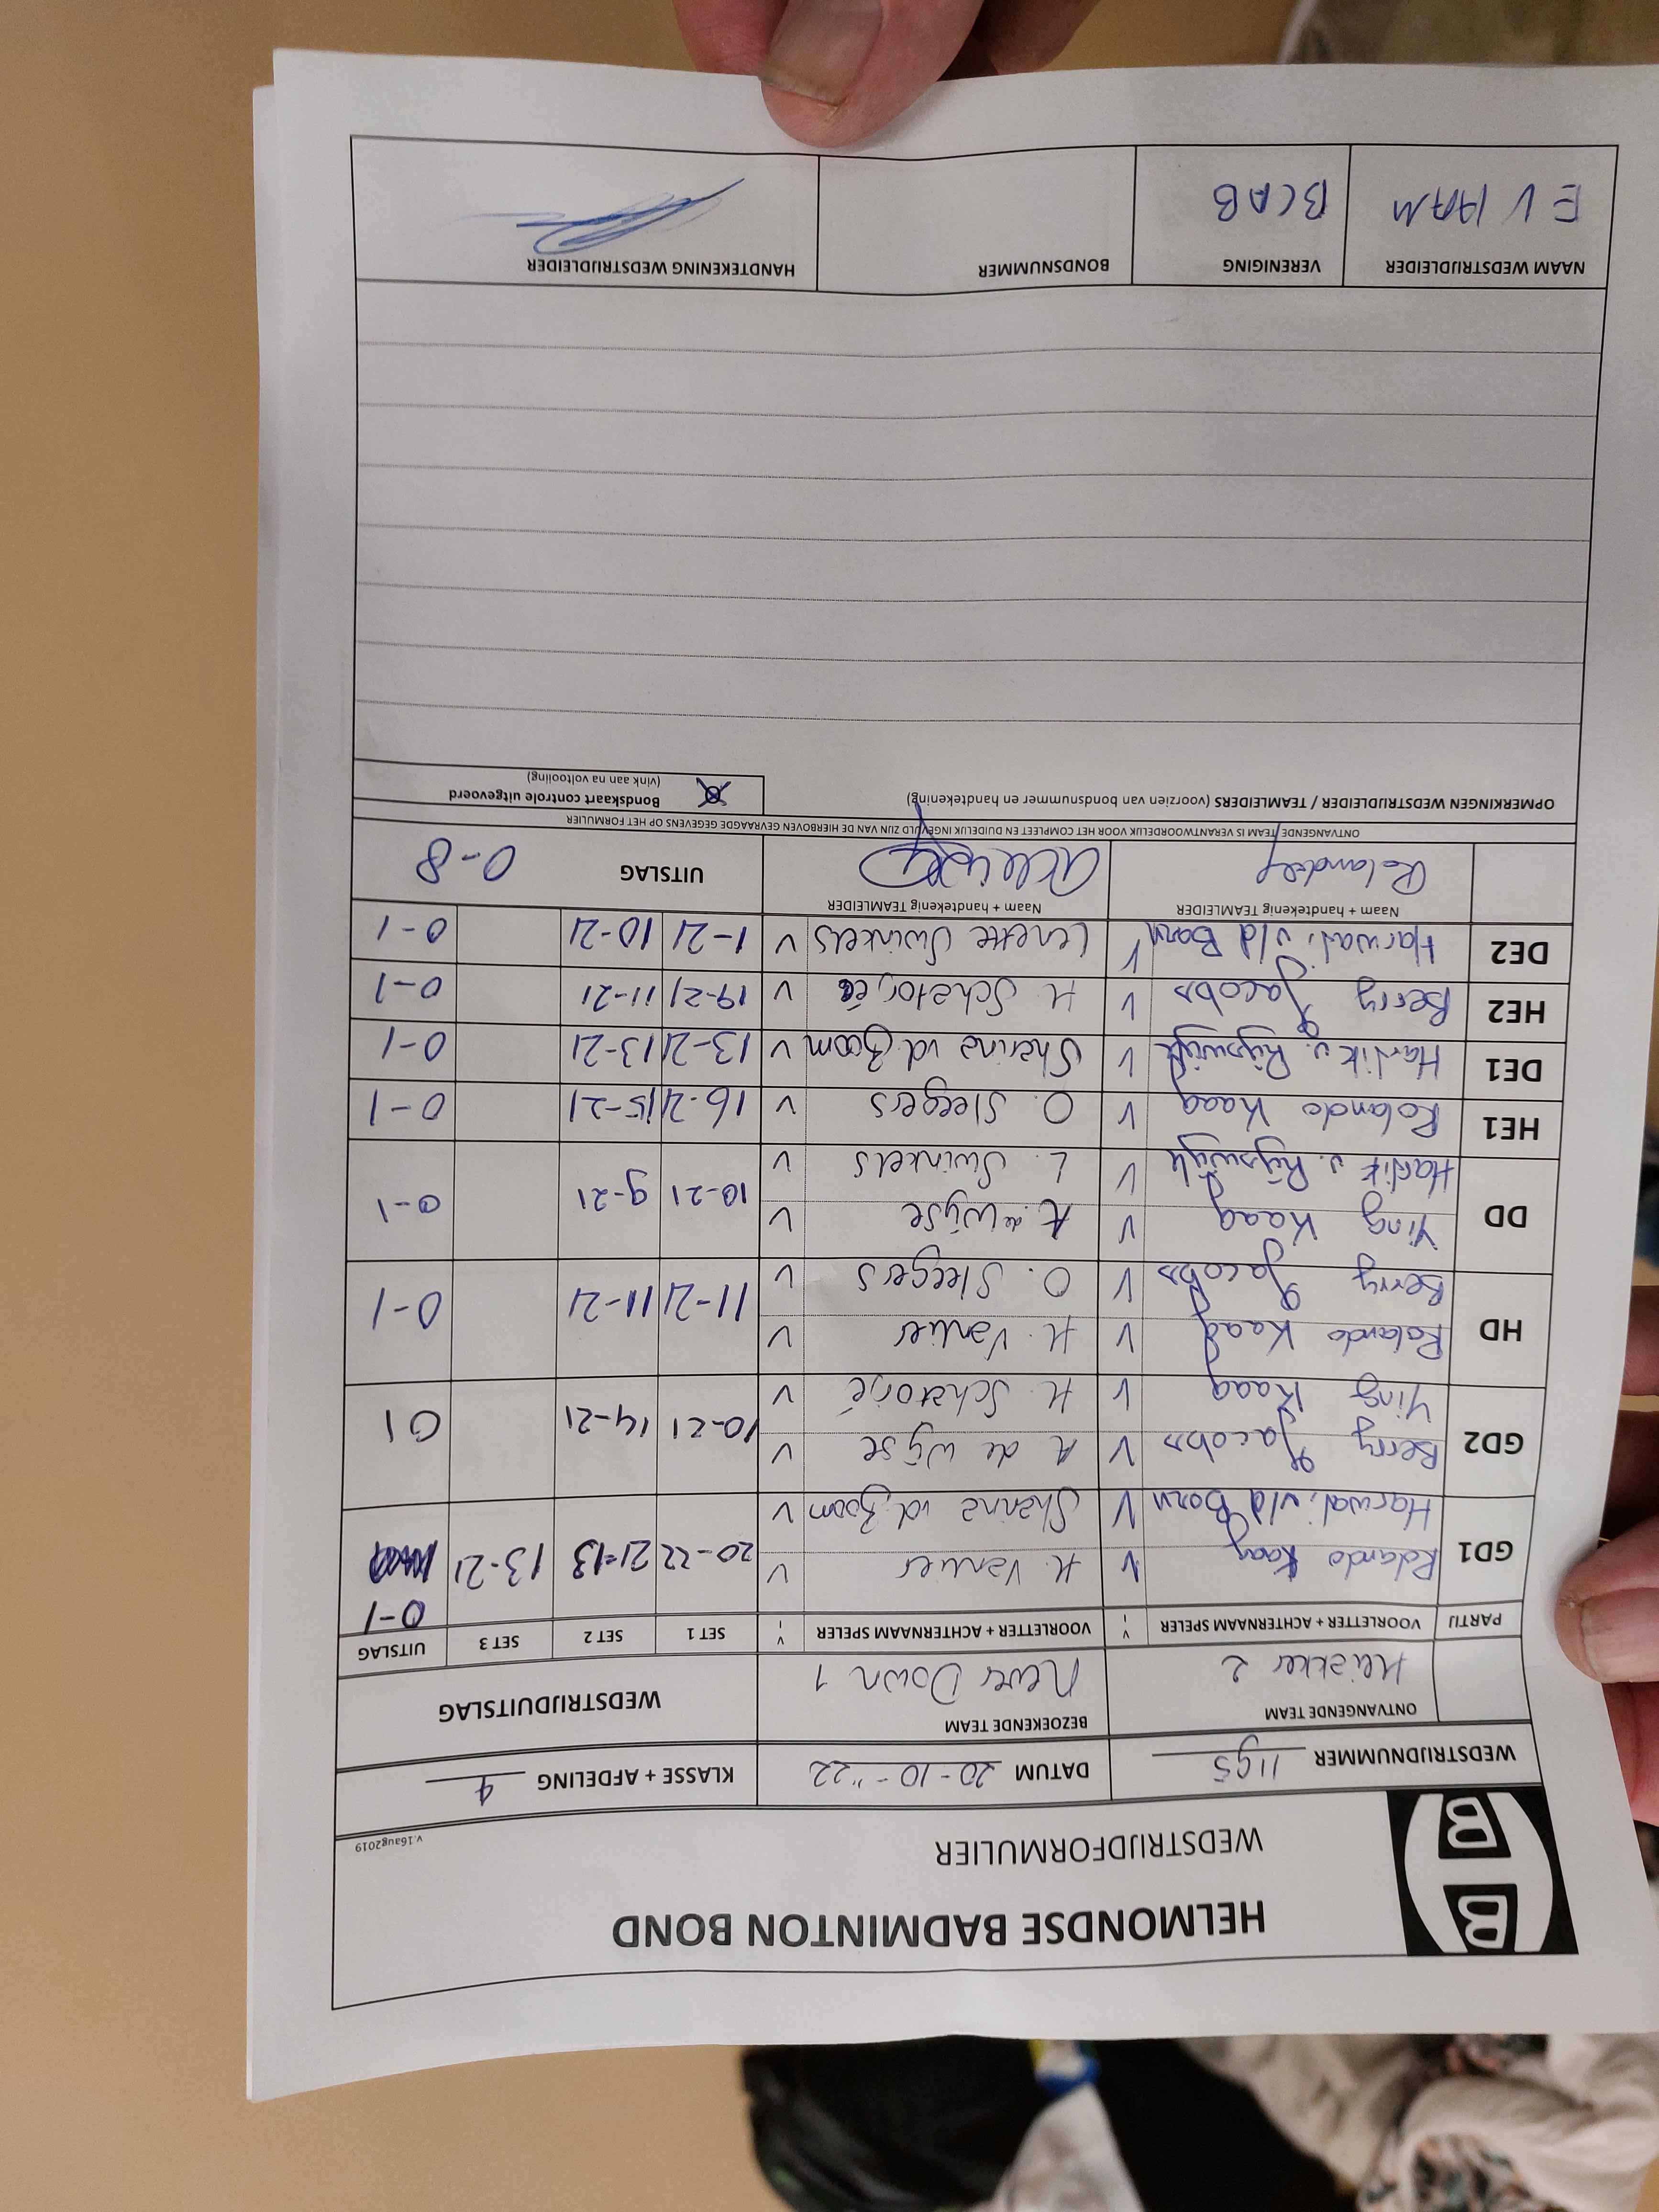 HELMONDSE BADMINTON BOND
WEDSTRIJDFORMULIER
v.16aug2019
WEDSTRIJDNUMMER 1195 DATUM 20-10-"22 KLASSE + AFDELING 4
ONTVANGENDE TEAM BEZOEKENDE TEAM WEDSTRIJDUITSLAG
2 Never Down 1
PARTIJ VOORLETTER + ACHTERNAAM SPELER V VOORLETTER + ACHTERNAAM SPELER V SET 1 SET 2 SET 3 UITSLAG
0-1
GD1 Rolando Kaag V H. Verlier V 20-22 21-13 13-21
Harwadi v/d Born V Sherina vd Boom V
GD2 Berry Jacobs V A de Wijse V 10-21 14-21 01
Ying Kaag V H. Schatorjé V
HD Rolando Kaag V H. Verlier V 11-21 11-21 0-1
Berry Jacobs V O. Sleegers V
DD Ying Kaag V A. de Wijse V 10-21 9-21 0-1
Harlik v. Rijswijk V L. Swinkels V
HE1 Rolando Kaag V O. Sleegers V 16-21 15-21 0-1
DE1 Harlik v. Rijswijk V Sherina vd Boom V 13-21 13-21 0-1
HE2 Berry Jacobs V H. Schatorjé V 19-21 11-21 0-1
DE2 Harwadi v/d Born V Lenette Swinkels V 1-21 10-21 0-1
Naam + handtekenig TEAMLEIDER Naam + handtekenig TEAMLEIDER
UITSLAG 0-8
ONTVANGENDE TEAM IS VERANTWOORDELIJK VOOR HET COMPLEET EN DUIDELIJK INGEVULD ZIJN VAN DE HIERBOVEN GEVRAAGDE GEGEVENS OP HET FORMULIER
OPMERKINGEN WEDSTRIJDLEIDER / TEAMLEIDERS (voorzien van bondsnummer en handtekening)
Bondskaart controle uitgevoerd
(vink aan na voltooiing)
NAAM WEDSTRIJDLEIDER VERENIGING BONDSNUMMER HANDTEKENING WEDSTRIJDLEIDER
E V HAM BCAB